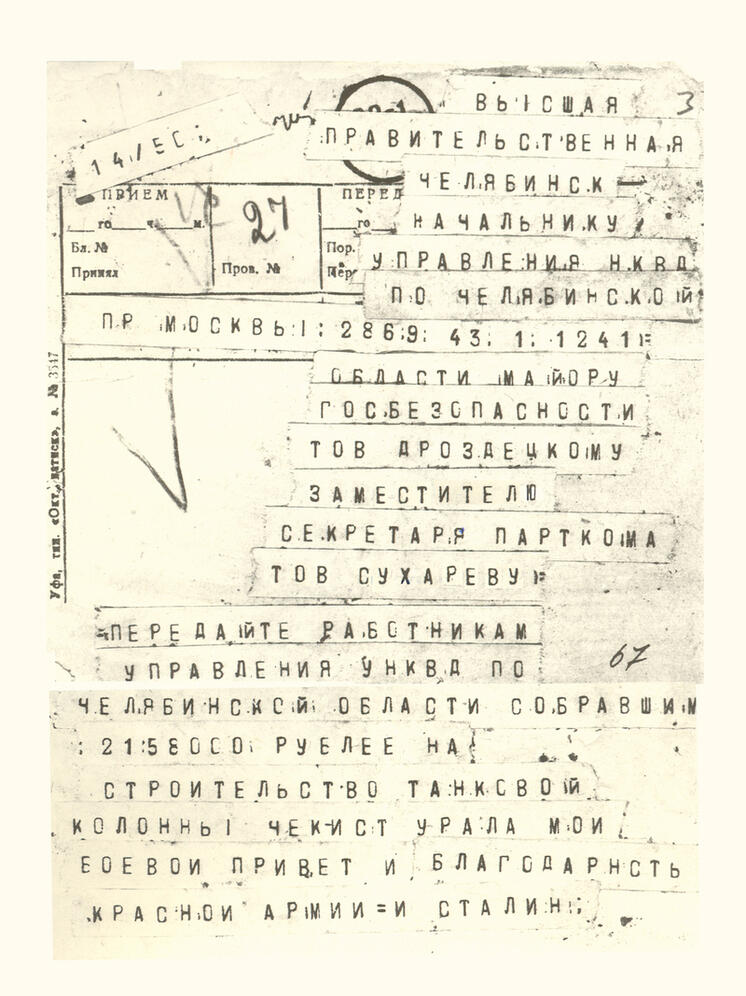 ВЫСШАЯ 3
14/ЕС:
ПРАВИТЕЛЬСТВЕННАЯ
ЧЕЛЯБИНСК —
ПРИЕМ
ПЕРЕД
27
го ч. м.
го
НАЧАЛЬНИКУ
Бл. №
Пор.
УПРАВЛЕНИЯ НКВД
Принял
Пров. №
Пер
ПО ЧЕЛЯБИНСКОЙ
ПР МОСКВЫ: 2869: 43: 1: 1241=
ОБЛАСТИ МАЙОРУ
ГОСБЕЗОПАСНОСТИ
ТОВ ДРОЗДЕЦКОМУ
ЗАМЕСТИТЕЛЮ
СЕКРЕТАРЯ ПАРТКОМА
ТОВ СУХАРЕВУ=
Уфа, тип. «Окт. натиск», з. № 3547
=ПЕРЕДАЙТЕ РАБОТНИКАМ
67
УПРАВЛЕНИЯ УНКВД ПО
ЧЕЛЯБИНСКОЙ ОБЛАСТИ СОБРАВШИМ
: 2158000 РУБЛЕЕ НА
СТРОИТЕЛЬСТВО ТАНКОВОЙ
КОЛОННЫ ЧЕКИСТ УРАЛА МОИ
БОЕВОИ ПРИВЕТ И БЛАГОДАРНСТЬ
КРАСНОИ АРМИИ=И СТАЛИН: